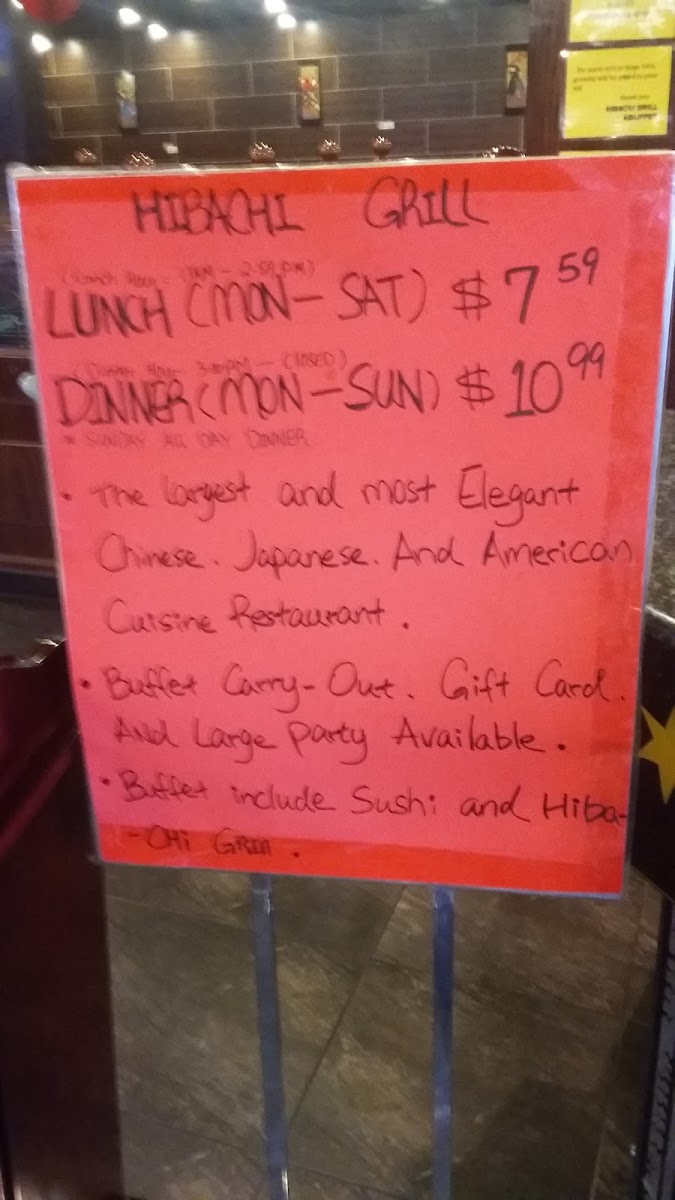 HIBACHI GRILL
(Lunch Hour: 11AM - 2:59 PM)
LUNCH (MON - SAT) $7 59
(Dinner Hour: 3:00PM - CLOSED)
DINNER (MON - SUN) $10 99
* SUNDAY ALL DAY DINNER
• The largest and most Elegant
Chinese. Japanese. And American
Cuisine Restaurant.
• Buffet Carry-Out. Gift Card.
AND Large party Available.
• Buffet include Sushi and Hiba-
-CHi GRill.
HIBACHI GRILL
&BUFFET